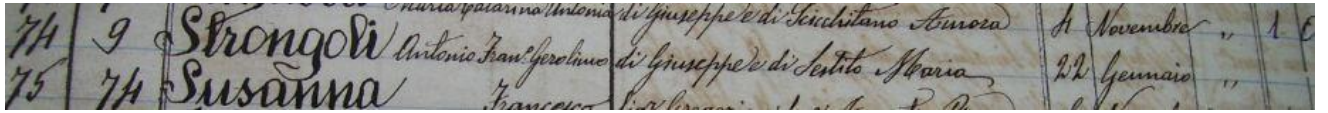 Maria Catarina Antonia di Giuseppe e di Scicchitano Aurora 4 Novembre " 1
74 9 Strongoli Antonio Fran.º Gerolimo di Giuseppe e di Sestito Maria 22 Gennaio "
75 74 Susanna Francesco